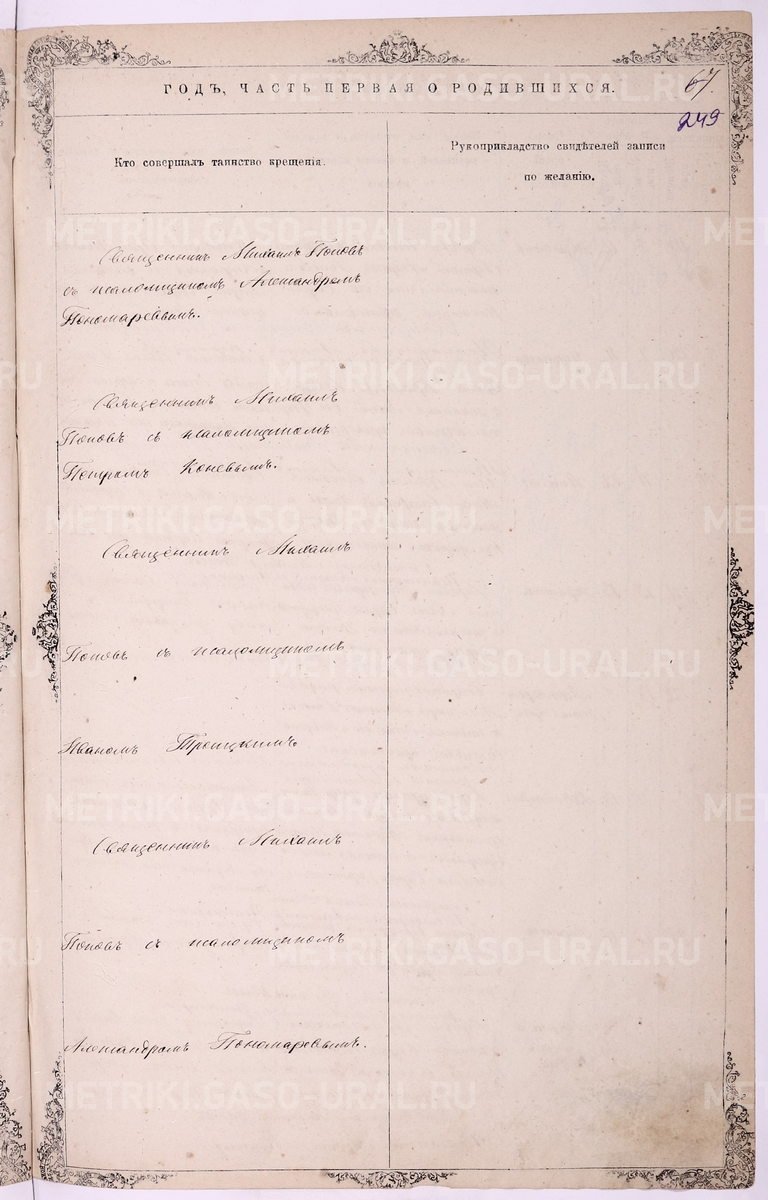 ГОДЪ, ЧАСТЬ ПЕРВАЯ О РОДИВШИХСЯ.
67
249
Кто совершалъ таинство крещенія.
Рукоприкладство свидѣтелей записи
по желанію.
Священникъ Михаилъ Поповъ
съ псаломщикомъ Александромъ
Пономаревымъ.
Священникъ Михаилъ
Поповъ съ псаломщикомъ
Петромъ Коневымъ.
Священникъ Михаилъ
Поповъ съ псаломщикомъ
Иваномъ Троицкимъ
Священникъ Михаилъ
Поповъ съ псаломщикомъ
Александромъ Пономаревымъ.
METRIKI.GASO-URAL.RU